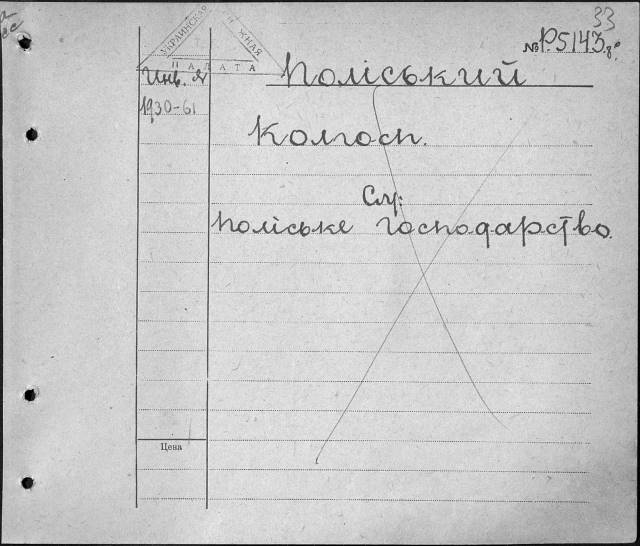 33
№ Р5143
УКРАИНСКАЯ
ЖНАЯ
ПАЛАТА
Инв. №
1930-61
Поліський
Колгосп.
См:
Поліське господарство.
Цена